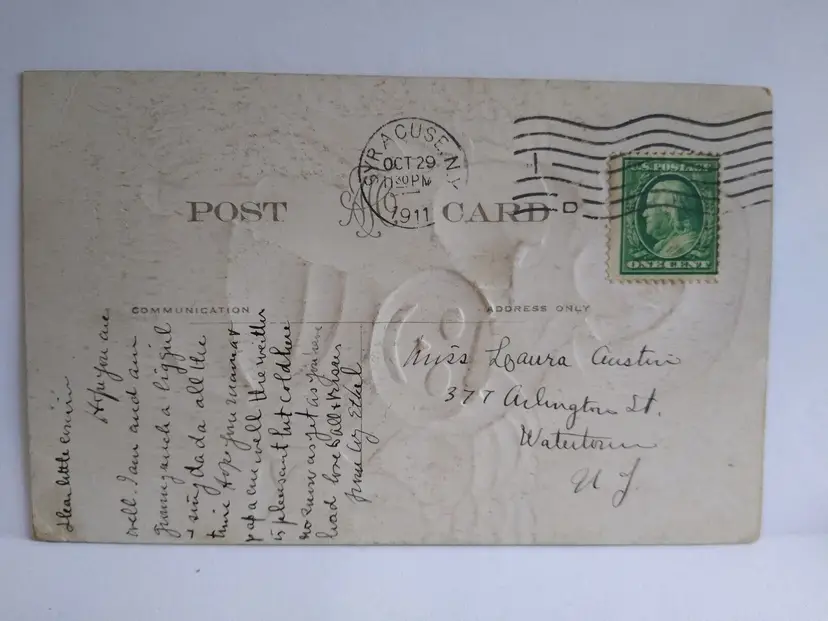 SYRACUSE, N.Y.
OCT 29
11 30 PM
1911
U.S. POSTAGE
ONE CENT
POST CARD
COMMUNICATION
ADDRESS ONLY
Miss Laura Austin
377 Arlington St.
Watertown
N Y.
Dear little cousin
Hope you are
well. I am and am
growing such a big girl
I sing dada all the
time Hope your mama &
papa are well the weather
is pleasant but cold here
no snow as yet as you have
had love to all & kisses
from Ethel